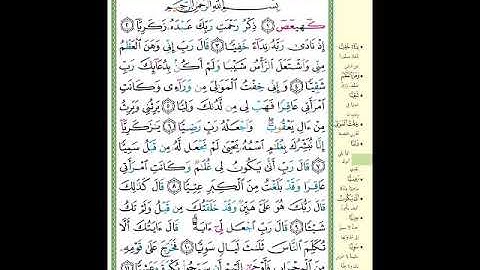 بِسْمِ ٱللَّهِ ٱلرَّحْمَٰنِ ٱلرَّحِيمِ
كٓهيعٓصٓ ١ ذِكْرُ رَحْمَتِ رَبِّكَ عَبْدَهُۥ زَكَرِيَّآ ٢
إِذْ نَادَىٰ رَبَّهُۥ نِدَآءً خَفِيًّا ٣ قَالَ رَبِّ إِنِّى وَهَنَ ٱلْعَظْمُ
مِنِّى وَٱشْتَعَلَ ٱلرَّأْسُ شَيْبًا وَلَمْ أَكُنۢ بِدُعَآئِكَ رَبِّ
شَقِيًّا ٤ وَإِنِّى خِفْتُ ٱلْمَوَٰلِىَ مِن وَرَآءِى وَكَانَتِ
ٱمْرَأَتِى عَاقِرًا فَهَبْ لِى مِن لَّدُنكَ وَلِيًّا ٥ يَرِثُنِى وَيَرِثُ
مِنْ ءَالِ يَعْقُوبَ وَٱجْعَلْهُ رَبِّ رَضِيًّا ٦ يَٰزَكَرِيَّآ
إِنَّا نُبَشِّرُكَ بِغُلَٰمٍ ٱسْمُهُۥ يَحْيَىٰ لَمْ نَجْعَل لَّهُۥ مِن قَبْلُ سَمِيًّا
٧ قَالَ رَبِّ أَنَّىٰ يَكُونُ لِى غُلَٰمٌ وَكَانَتِ ٱمْرَأَتِى
عَاقِرًا وَقَدْ بَلَغْتُ مِنَ ٱلْكِبَرِ عِتِيًّا ٨ قَالَ كَذَٰلِكَ
قَالَ رَبُّكَ هُوَ عَلَىَّ هَيِّنٌ وَقَدْ خَلَقْتُكَ مِن قَبْلُ وَلَمْ تَكُ
شَيْـًٔا ٩ قَالَ رَبِّ ٱجْعَل لِّىٓ ءَايَةً قَالَ ءَايَتُكَ أَلَّا
تُكَلِّمَ ٱلنَّاسَ ثَلَٰثَ لَيَالٍ سَوِيًّا ١٠ فَخَرَجَ عَلَىٰ قَوْمِهِۦ
مِنَ ٱلْمِحْرَابِ فَأَوْحَىٰٓ إِلَيْهِمْ أَن سَبِّحُوا۟ بُكْرَةً وَعَشِيًّا ١١